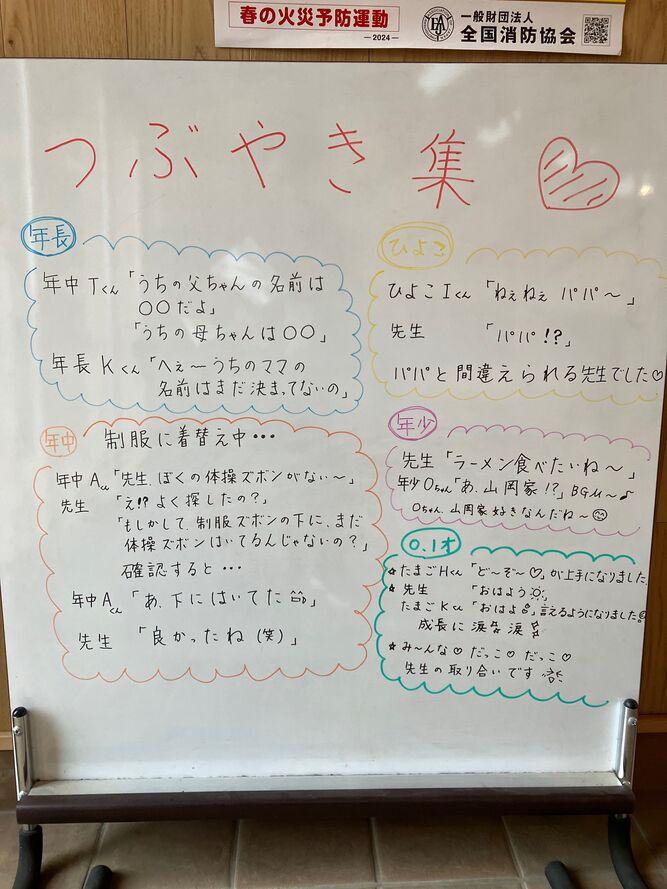 春の火災予防運動
—2024—
一般財団法人
全国消防協会
つぶやき集
年長
年中Tくん「うちの父ちゃんの名前は
〇〇だよ」
「うちの母ちゃんは〇〇」
年長Kくん「へぇ〜うちのママの
名前はまだ決まってないの」
年中
制服に着替え中・・・
年中Aくん「先生、ぼくの体操ズボンがない〜」
先生「え!?よく探したの？」
「もしかして、制服ズボンの下に、まだ
体操ズボンはいてるんじゃないの？」
確認すると・・・
年中Aくん「あ、下にはいてた」
先生「良かったね(笑)」
ひよこ
ひよこIくん「ねぇねぇ パパ〜」
先生「パパ!?」
パパと間違えられる先生でした♡
年少
先生「ラーメン食べたいね〜」
年少Oちゃん「あ、山岡家!?」BGM〜♪
Oちゃん、山岡家好きなんだね〜
0.1才
☆たまごHくん「ど〜ぞ〜♡」が上手になりました。
☆先生「おはよう」
たまごKくん「おはよ」言えるようになりました
成長に涙涙
☆み〜んな♡だっこ♡だっこ♡
先生の取り合いです